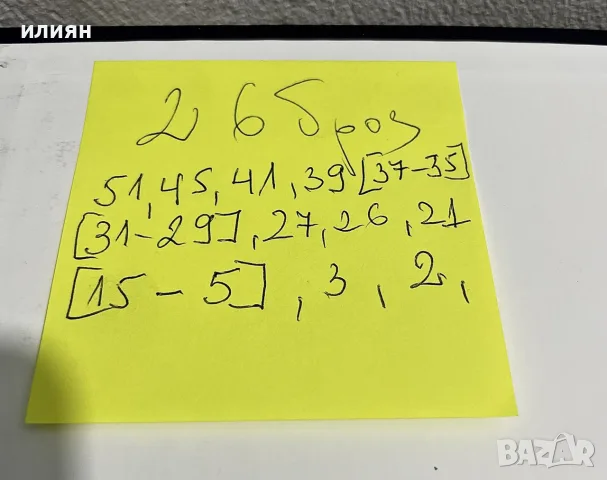 илиян
26 броя
51, 45, 41, 39 [37-35]
[31-29], 27, 26, 21
[15-5], 3, 2,
BAZAR